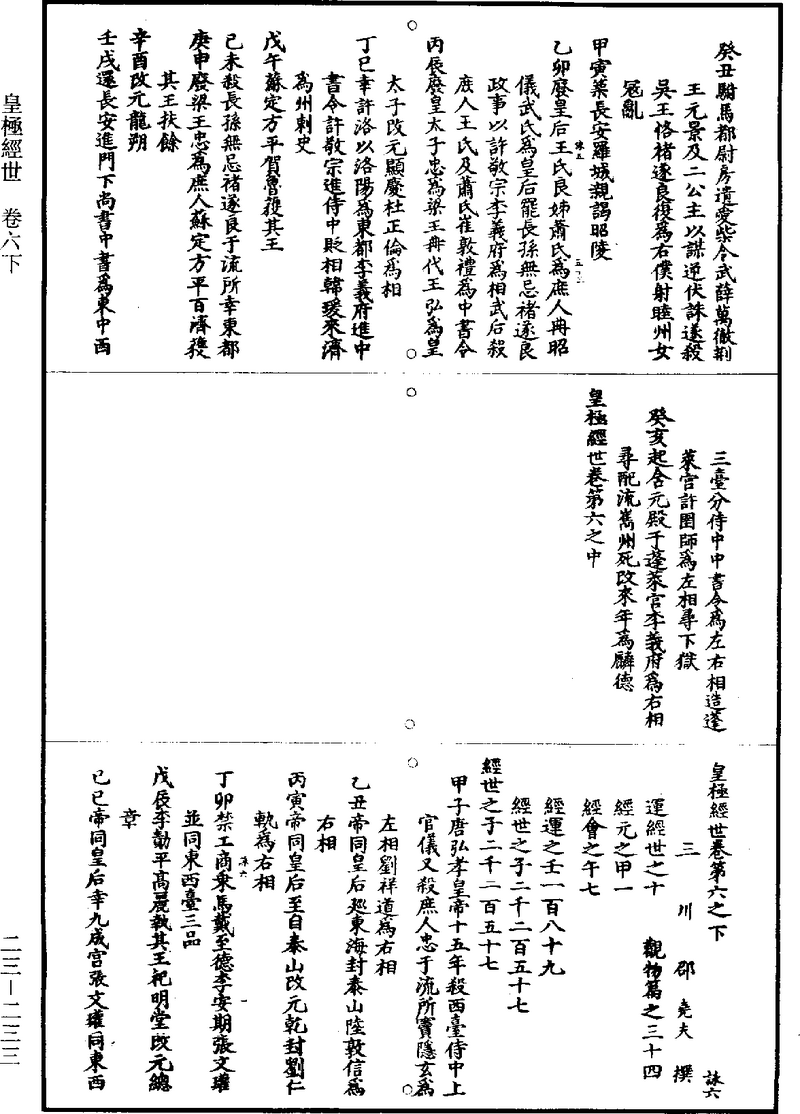 皇極經世　卷六下
二三—二三三
癸丑駙馬都尉房遺愛柴令武薛萬徹荆
王元景及二公主以謀逆伏誅遂殺
吳王恪褚遂良復為右僕射睦州女
冦亂
甲寅築長安羅城親謁昭陵
乙卯廢皇后王氏良娣蕭氏為庶人冊昭
儀武氏為皇后罷長孫無忌褚遂良
政事以許敬宗李義府為相武后殺
庶人王氏及蕭氏崔敦禮為中書令
丙辰廢皇太子忠為梁王冊代王弘為皇
太子改元顯慶杜正倫為相
丁巳幸許洛以洛陽為東都李義府進中
書令許敬宗進侍中貶相韓瑗來濟
為州刺史
戊午蘇定方平賀魯獲其王
己未殺長孫無忌褚遂良于流所幸東都
庚申廢梁王忠為庶人蘇定方平百濟獲
其王扶餘
辛酉改元龍朔
壬戌還長安進門下尚書中書為東中西
三臺分侍中中書令為左右相造蓬
萊宮許圉師為左相尋下獄
癸亥起含元殿于蓬萊宮李義府為右相
尋配流巂州死改來年為麟德
皇極經世卷第六之中
皇極經世卷第六之下
三川邵堯夫撰
詠六
運經世之十　觀物篇之三十四
經元之甲一
經會之午七
經運之壬一百八十九
經世之子二千二百五十七
經世之子二千二百五十七
甲子唐弘孝皇帝十五年殺西臺侍中上
官儀又殺庶人忠于流所竇隱玄為
左相劉祥道為右相
乙丑帝同皇后廵東海封泰山陸敦信為
右相
丙寅帝同皇后至自泰山改元乾封劉仁
軌為右相
丁卯禁工商乗馬戴至德李安期張文瓘
並同東西臺三品
戊辰李勣平髙麗執其王祀明堂改元總
章
己巳帝同皇后幸九成宮張文瓘同東西